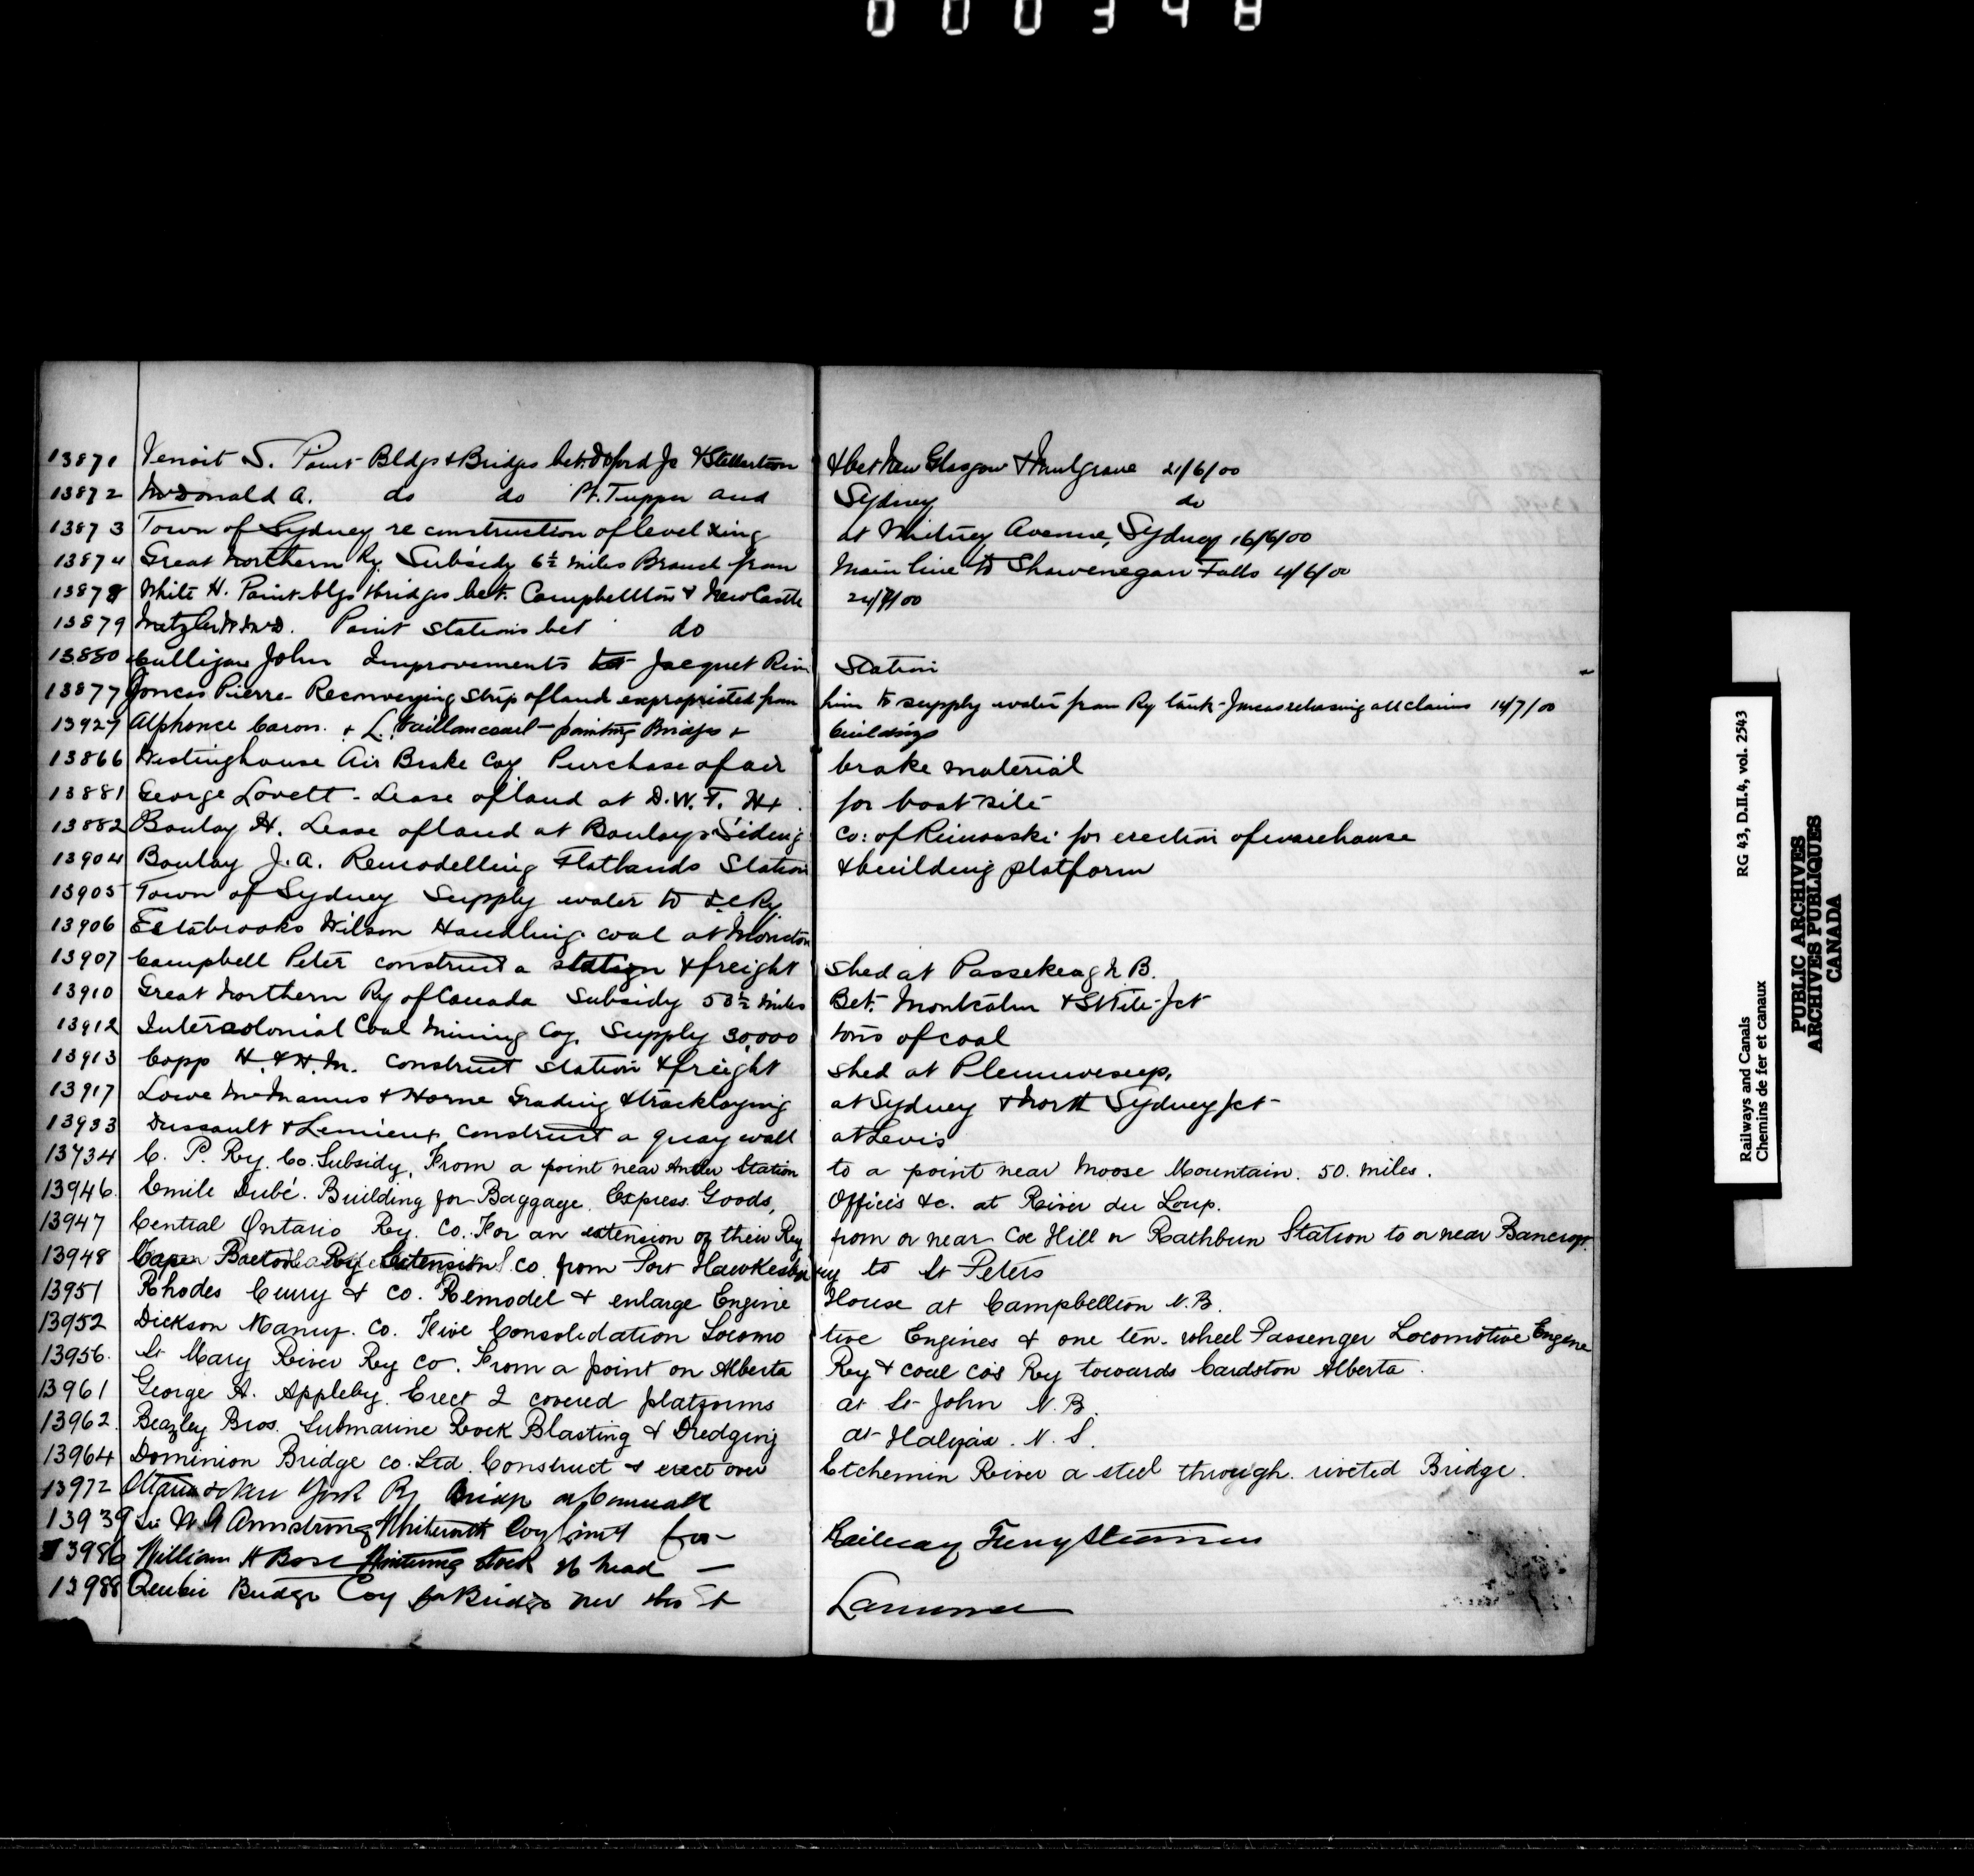 000398
13871 Venoit S. Paint Bldgs & Bridges bet. Oxford Jc & Stellarton & bet New Glasgow & Mulgrave 21/6/00
13872 McDonald A. do do Pt. Tupper and Sydney do
13873 Town of Sydney re construction of level xing at Whitney Avenue, Sydney 16/6/00
13874 Great Northern Ry. Subsidy 6½ miles Branch from Main line to Shawenegan Falls 4/6/00
13878 White H. Paint blgs & bridges bet. Campbellton & New Castle 24/7/00
13879 Metzler Paint stations bet do
13880 Culligan John Improvements Jacquet River Station
13877 Joncas Pierre - Reconveying strip of land expropriated from him to supply water from Ry tank - Joncas releasing all claims 14/7/00
13927 Alphonce Caron. & L. Vaillancourt - painting Bridges & buildings
13866 Westinghouse Air Brake Coy Purchase of air brake material
13881 George Lovett - Lease of land at D.W.T. Hx. for boat site
13882 Boulay H. Lease of land at Boulay's Siding Co: of Rimouski for erection of warehouse
13904 Boulay J.A. Remodelling Flatlands Station & building platform
13905 Town of Sydney Supply water to I.C.Ry.
13906 Estabrooks Wilson Handling coal at Moncton
13907 Campbell Peter construct a station & freight shed at Passekeag N.B.
13910 Great Northern Ry of Canada Subsidy 53½ miles Bet. Montcalm & St Tite Jct
13912 Intercolonial Coal Mining Coy. Supply 30,000 tons of coal
13913 Copp H. & H.M. Construct station & freight shed at Plumweseep.
13917 Lowe McManus & Horne Grading & tracklaying at Sydney & North Sydney Jct
13933 Dussault & Lemieux construct a quay wall at Levis
13734 C. P. Ry. Co. Subsidy, From a point near Antler Station to a point near Moose Mountain. 50. miles.
13946. Emile Dubé. Building for Baggage, Express Goods, Offices &c. at River du Loup.
13947 Central Ontario Ry. Co. For an extension of their Ry from or near Coe Hill or Rathbun Station to or near Bancroft.
13948 Cape Breton Ry Extension Co. from Port Hawkesbury to St Peters
13951 Rhodes Curry & Co. Remodel & enlarge Engine House at Campbellton N.B.
13952 Dickson Manuf. Co. Five Consolidation Locomotive Engines & one ten-wheel Passenger Locomotive Engine
13956. St Mary River Ry Co. From a point on Alberta Ry & coal co's Ry towards Cardston Alberta.
13961 George H. Appleby. Erect 2 covered platforms at St John N.B.
13962. Beazley Bros. Submarine Rock Blasting & Dredging at Halifax. N.S.
13964 Dominion Bridge co. Ltd. Construct & erect over Etchemin River a steel through riveted Bridge.
13972 Ottawa & New York Ry Bridge at Cornwall
13939 Sir W G Armstrong Whitworth Coy Limd for - Railway Ferry Steamer
13986 William H Wintering Stock 26 head -
13988 Quebec Bridge Coy for Bridge over the St Lawrence
Railways and Canals RG 43, D.II.4, vol. 2543
Chemins de fer et canaux
PUBLIC ARCHIVES
ARCHIVES PUBLIQUES
CANADA